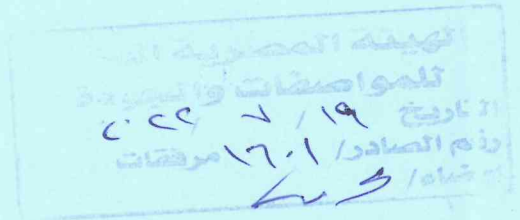 الهيئة المصرية
للمواصفات والجودة
التاريخ ١٩ / ٧ ٢٠٢٢
رقم الصادر/ ١٦٠١ مرفقات
إمضاء/